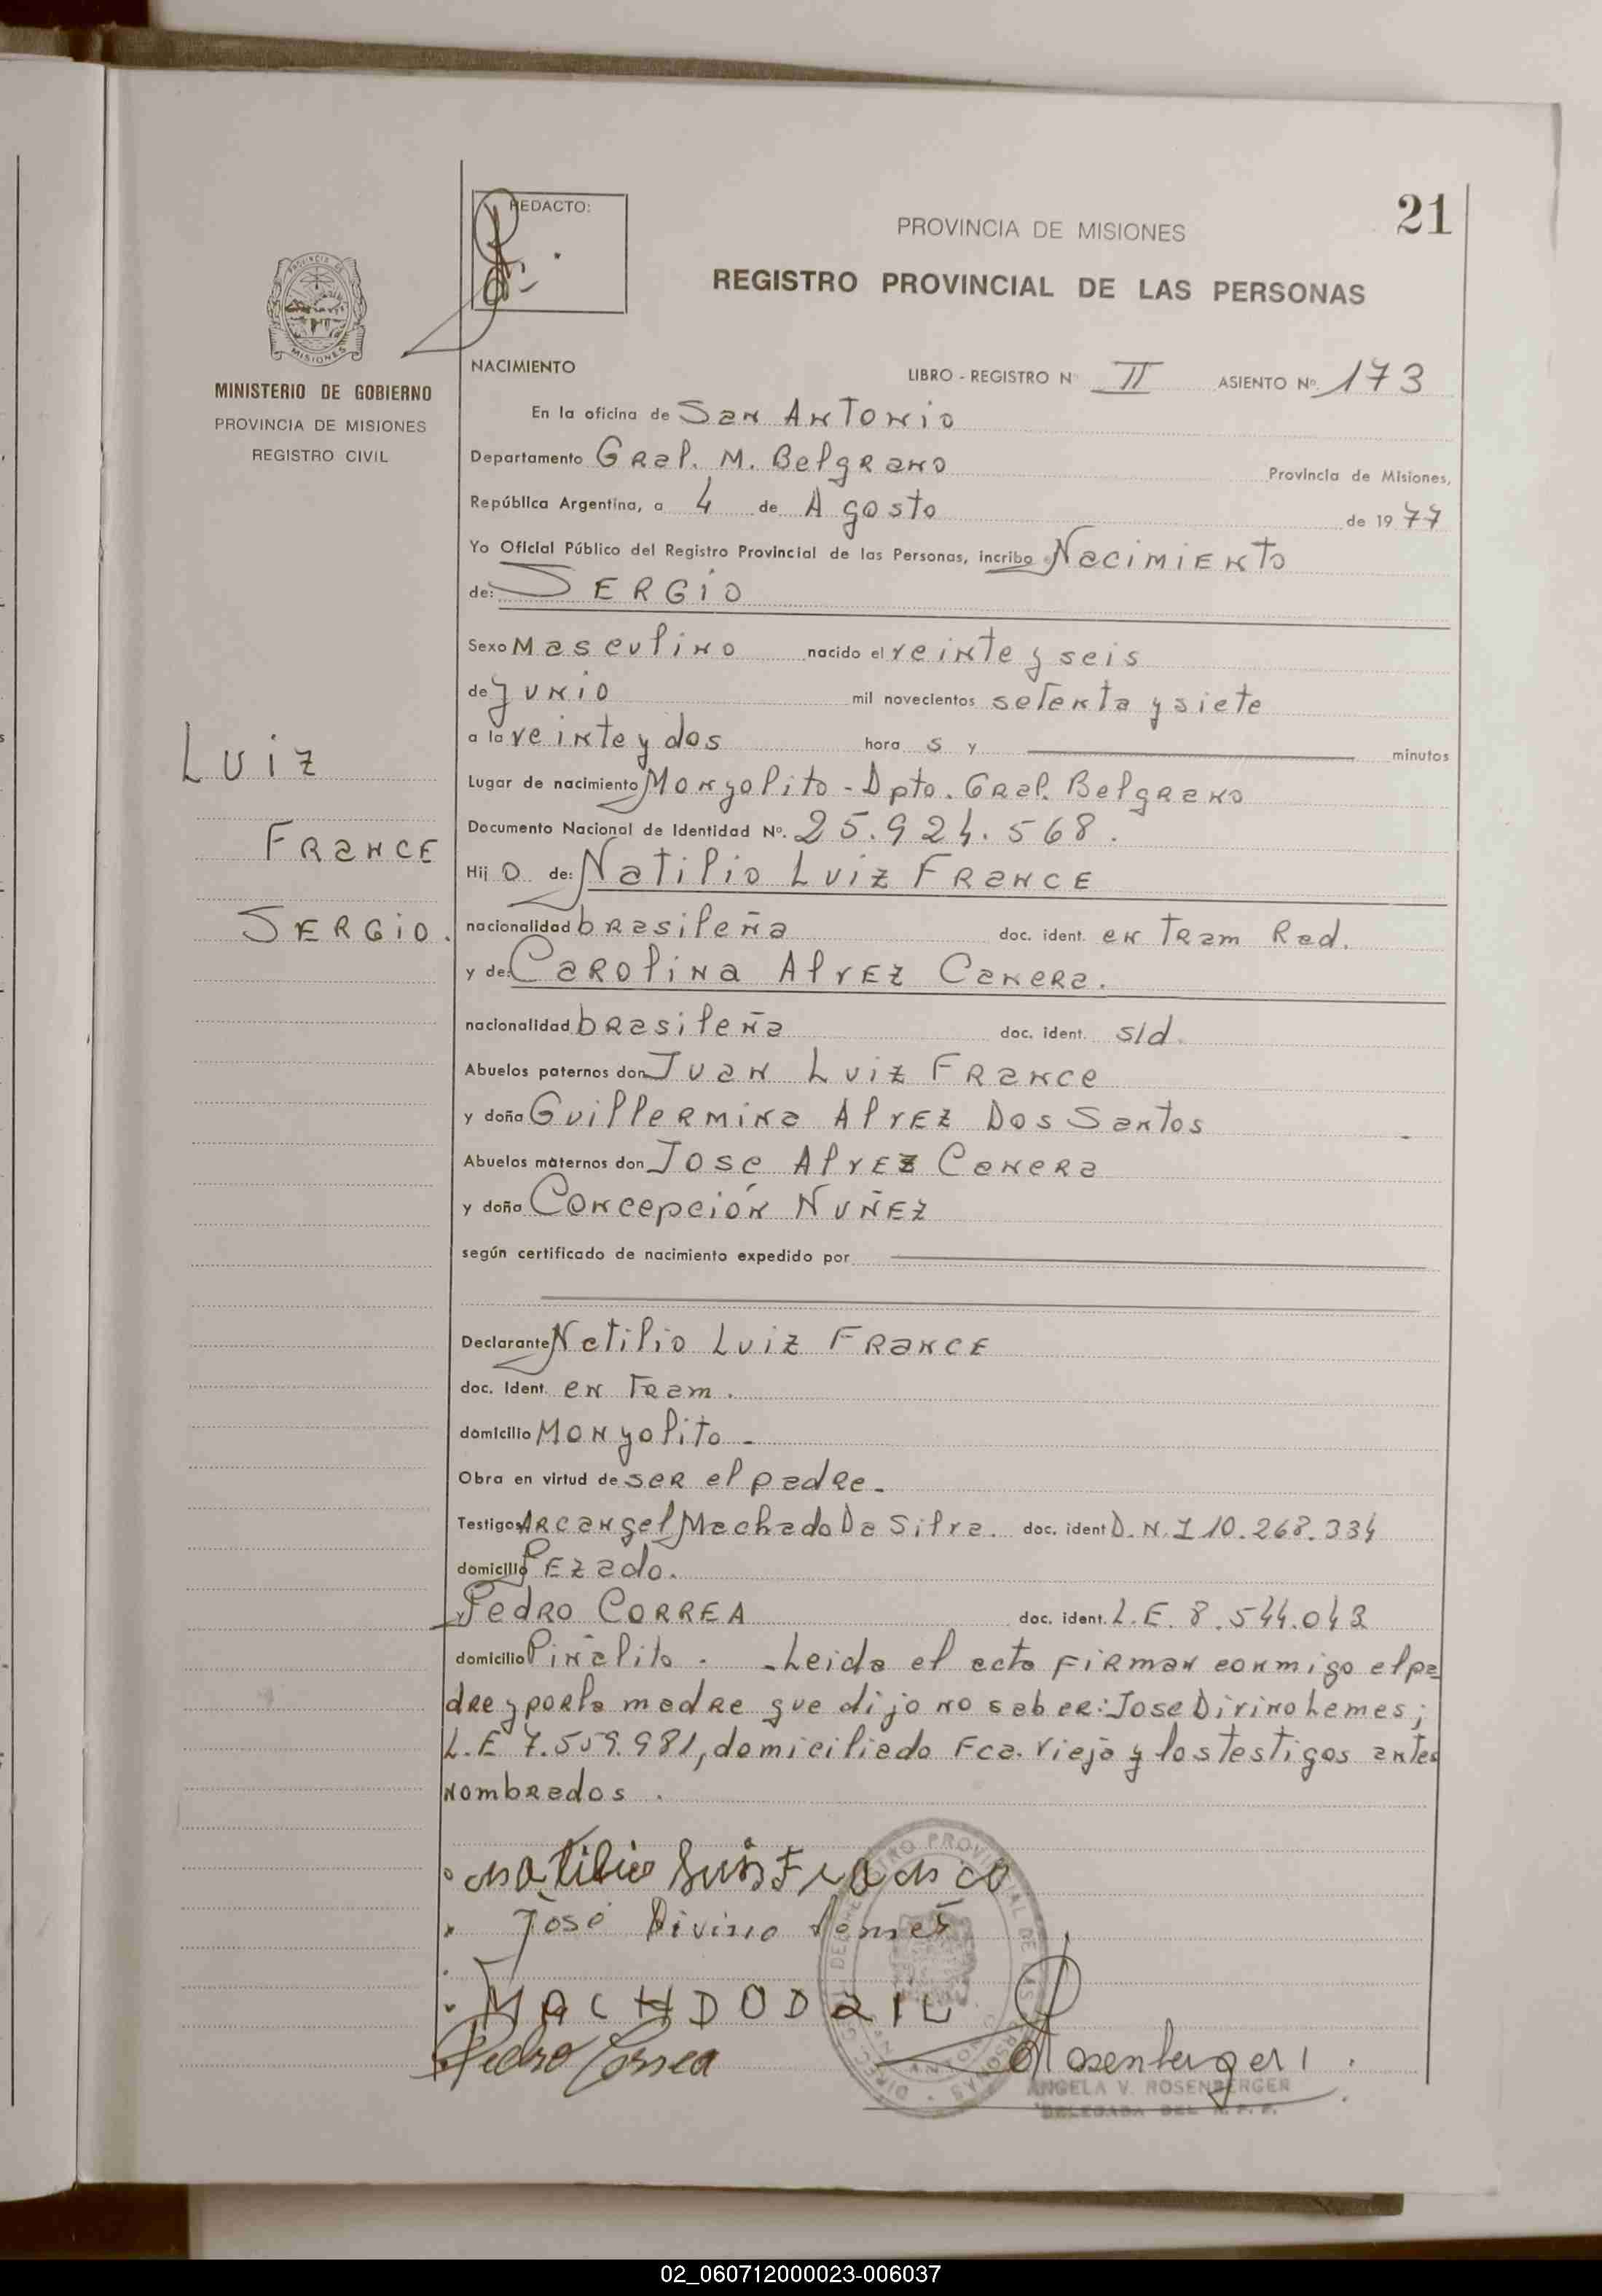 21
REDACTO:
PROVINCIA DE MISIONES
REGISTRO PROVINCIAL DE LAS PERSONAS
MISIONES
MINISTERIO DE GOBIERNO
PROVINCIA DE MISIONES
REGISTRO CIVIL
Luiz
FRANCE
SERGIO.
NACIMIENTO LIBRO - REGISTRO Nº II ASIENTO Nº. 173
En la oficina de San Antonio
Departamento Gral. M. Belgrano Provincia de Misiones,
República Argentina, a 4 de Agosto de 1977
Yo Oficial Público del Registro Provincial de las Personas, incribo Nacimiento
de: SERGIO
Sexo Masculino nacido el veinte y seis
de Junio mil novecientos setenta y siete
a la veinte y dos hora s y minutos
Lugar de nacimiento Monyolito - Dpto. Gral. Belgrano
Documento Nacional de Identidad Nº. 25.924.568.
Hij o de: Natilio Luiz FRANCE
nacionalidad brasileña doc. ident. en Tram Rad.
y de: Carolina Alvez Canera.
nacionalidad brasileña doc. ident. s/d.
Abuelos paternos don Juan Luiz France
y doña Guillermina Alvez Dos Santos
Abuelos maternos don Jose Alvez Canera
y doña Concepción Nuñez
según certificado de nacimiento expedido por
Declarante Natilio Luiz FRANCE
doc. Ident. en Tram.
domicilio Monyolito -
Obra en virtud de ser el padre.
Testigos Arcangel Machado Da Silva. doc. ident D.N.I 10.268.334
domicilio Pezado.
y Pedro CORREA doc. ident. L.E. 8.544.043
domicilio Piñalito. - Leida el acta firman conmigo el pa
dre y por la madre que dijo no saber: Jose Divino Lemes;
L.E 7.559.981, domiciliado Fca. Vieja y los testigos antes
nombrados.
Natilio Luis Franco
José Divino Lemes
MACHDODA
Pedro Correa
Rosenberger
ANGELA V. ROSENBERGER
DELEGADA DEL R. P. P.
02_060712000023-006037